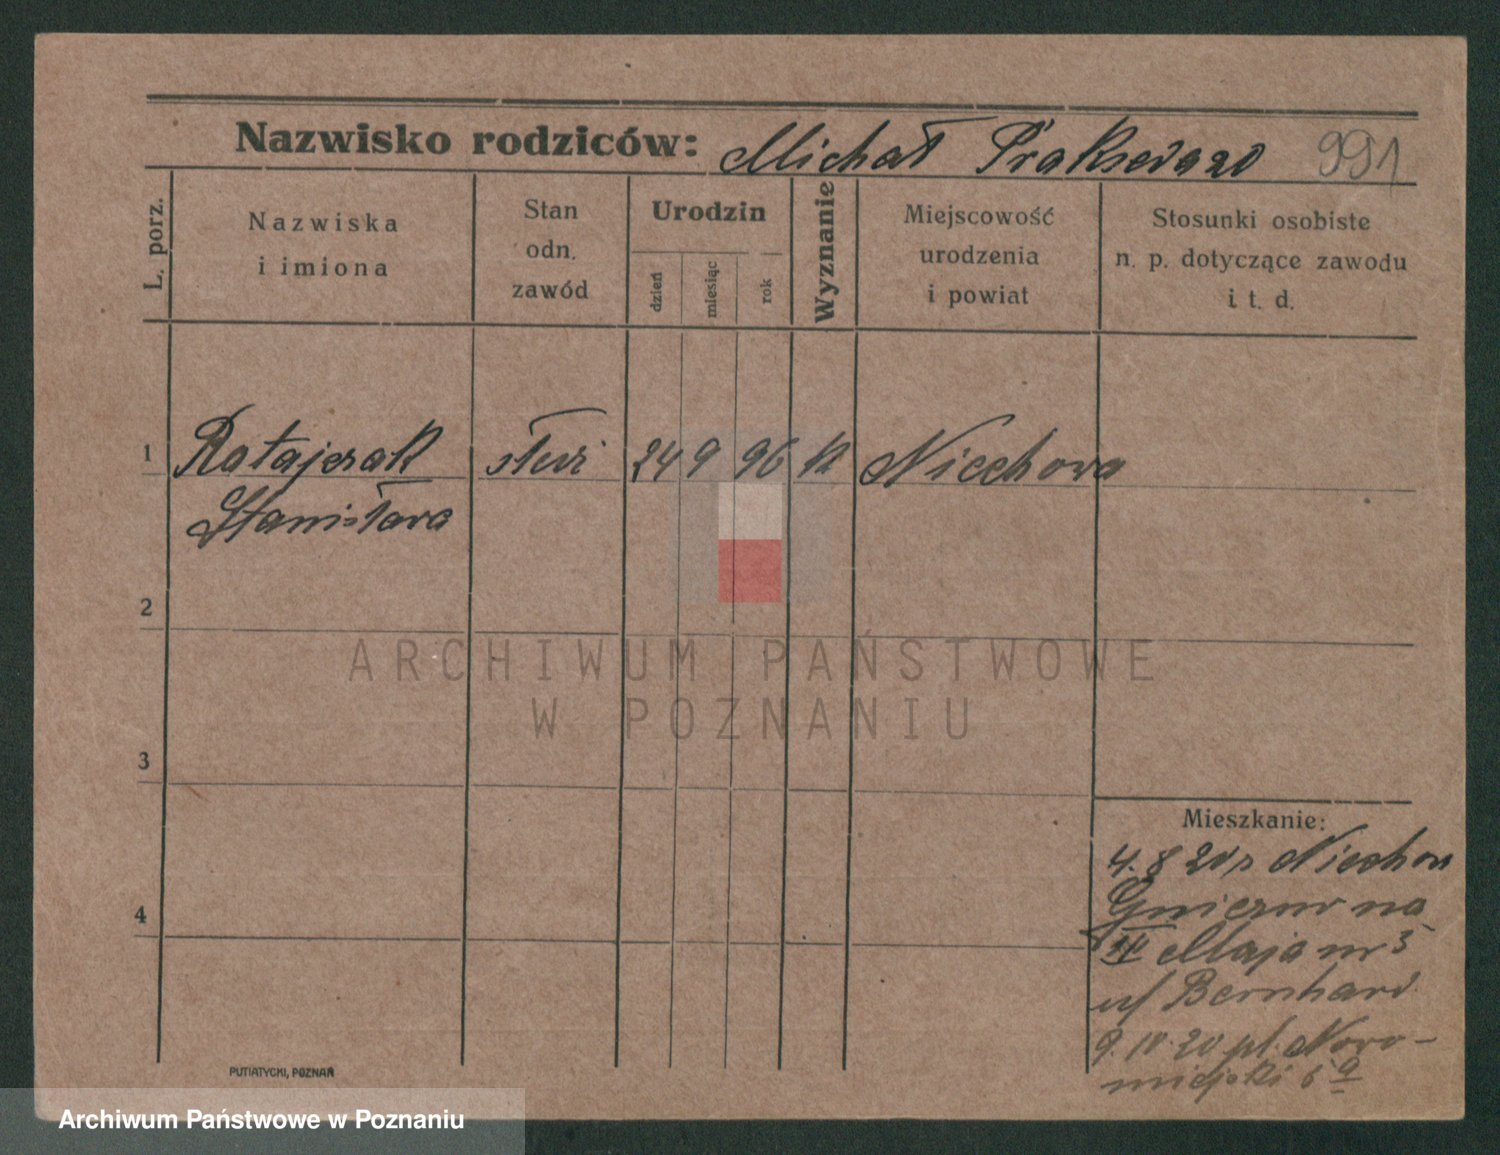 Nazwisko rodziców: Michał Prakseda 991
L. porz.
Nazwiska
i imiona
Stan
odn.
zawód
Urodzin
dzień
miesiąc
rok
Wyznanie
Miejscowość
urodzenia
i powiat
Stosunki osobiste
n. p. dotyczące zawodu
i t. d.
1 Ratajczak 24 9 96 k Niechowa
Stanisława
2
ARCHIWUM PAŃSTWOWE
W POZNANIU
3
Mieszkanie:
4. 8 20 Niechan
4
Gniezno na
Maja nr 5
u/ Bernhard
9. 10. 20 pl. Nowo-
miejski 6a
PUTIATYCKI, POZNAŃ
Archiwum Państwowe w Poznaniu